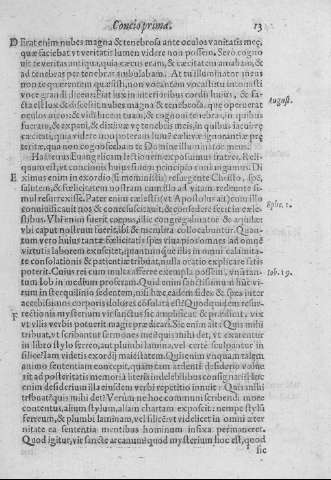 Concio prima. 13
D Erat enim nubes magna & tenebrosa ante oculos vanitatis meę,
quæ faciebat vt veritatis lumen videre non possem. Sero cogno
ui te veritas antiqua, quia cæcus eram, & cæcitatem amabam, &
ad tenebras per tenebras ambulabam. At tu illuminator meus
non te quærentem quæsisti, non vocantem vocasti tu intonuisti
voce grandi dicens: Fiat lux in interioribus cordis huius, & fa-
cta est lux & discessit nubes magna & tenebrosa, que operuerat
oculos meos: & vidi lucem tuam, & cognoui tenebras, in quibus
fueram, & expaui, & dixi: væ væ tenebris meis, in quibus iacui: væ
cæcitati, qua videre non poteram lumē cæli: væ ignorantiæ præ
teritæ, qua non cognoscebam te Domine illuminator meum.
August.
Hactenus Euangelicam lectionem exposuimus fratres. Reli-
quum est, vt concionis huius finem principio coniungamus. Di
E ximus enim in exordio sermonis nostri resurgente Christo, spē,
salutem, & fœlicitatem nostram cum illo ad vitam redeunte si-
mul resurrexisse. Pater enim cælestis (vt Apostolus ait) cum illo
conuiuificauit nos & conresuscitauit, & consedere fecit in cæle-
stibus. Vbi enim fuerit corpus, illic congregabuntur & aquilæ:
Ephe. 2.
vbi caput nostrum fuerit, ibi & membra collocabuntur. Quan-
tum vero huius tantæ fœlicitatis spes viua pios omnes ad omnē
virtutis laborem excusset, quantumque illis in omni calamita-
te consolationis & patientiæ tribuat, nulla oratio explicare satis
poterit. Cuius rei cum multa afferre exempla possem, vnū tan-
tum Iob in medium proferam. Quid enim sanctissimum hūc vi-
rum in sterquilinio sedentem, nisi hæc eadem fides & spes inter
Iob. 19.
acerbissimos corporis dolores cōsolata est? Quod quidem resur-
F rectionis mysterium vir sanctus sic amplificat & prædicat, vix
vt vllis verbis potuerit magis prædicari. Sic enim ait: Quis mihi
tribuat, vt scribantur sermones mei? quis mihi det, vt exarentur
in libro stylo ferreo, aut plumbi lamina, vel certe sculpantur in
silice? Iam videtis exordij maiestatem. Quis enim vnquam talem
animo sententiam concepit, quam tam ardenti desiderio volue
rit ad posteritatis memoriā literis indelebilibus consignari? Hec
enim desiderium illa eiusdem verbi repetitio innuit: Quis mihi
tribuat? quis mihi det? Verum ne hoc communi scribendi more
contentus, alium stylum, aliam chartam exposcit: nempe stylū
ferreum, & plumbi laminam, vel silicē: vt videlicet in omni æter
nitate ea sententia mentibus hominum infixa permaneret.
Quod igitur, vir sancte arcanum? quod mysterium hoc est, quod
sic